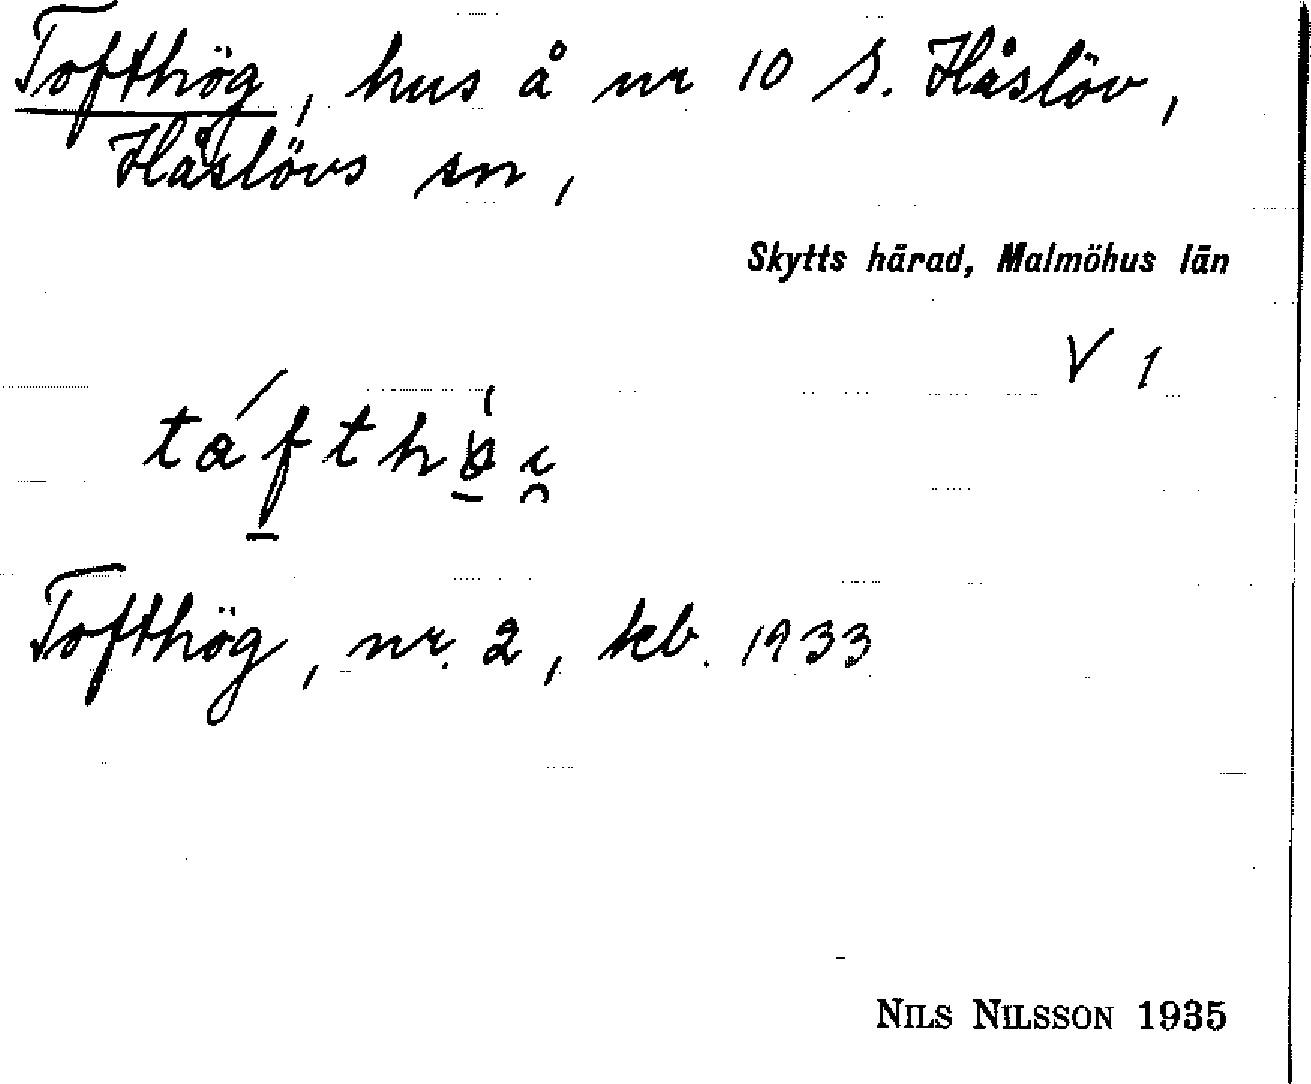 Tofthög, hus å nr 10 S. Håslöv,
Håslövs sn,
Skytts härad, Malmöhus län
V 1
Tofthög, nr. 2, kb. 1933
NILS NILSSON 1935